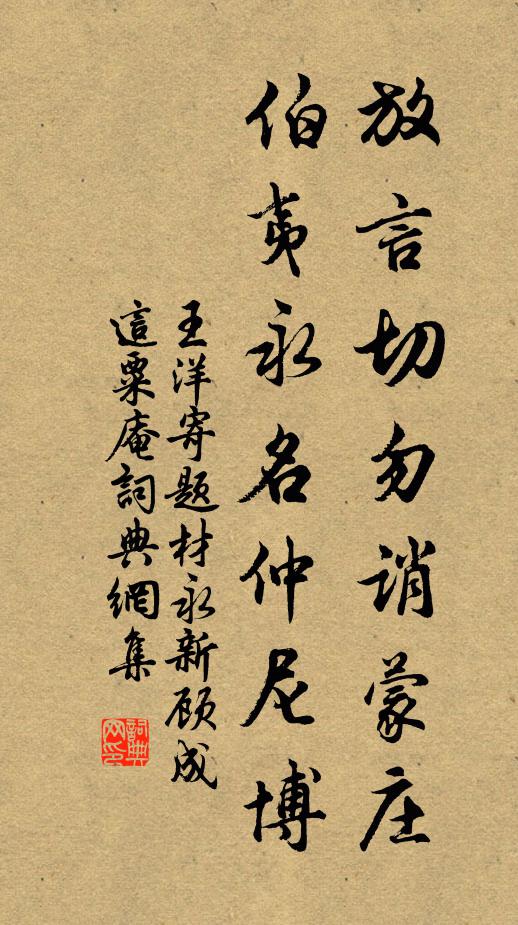 放言切勿誚蒙庄
伯夷永名仲尼博
王洋寄题材永新顾成
這粟庵詞典網集
詞典网印